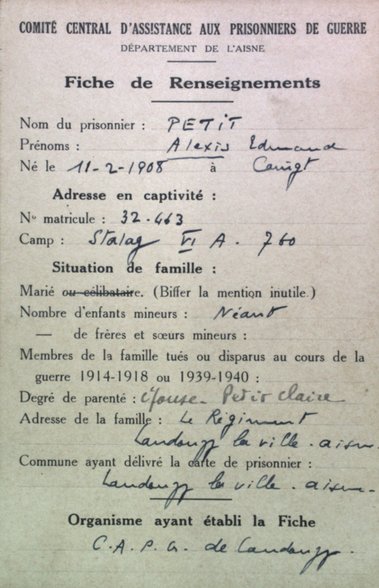 COMITÉ CENTRAL D'ASSISTANCE AUX PRISONNIERS DE GUERRE
DÉPARTEMENT DE L'AISNE
Fiche de Renseignements
Nom du prisonnier : PETIT
Prénoms : Alexis Edmond
Né le 11-2-1908 à
Adresse en captivité :
N° matricule : 32.463
Camp : Stalag VI A. 760
Situation de famille :
Marié ou célibataire. (Biffer la mention inutile.)
Nombre d'enfants mineurs : Néant
— de frères et sœurs mineurs :
Membres de la famille tués ou disparus au cours de la
guerre 1914-1918 ou 1939-1940 :
Degré de parenté : épouse Petit Claire
Adresse de la famille : Le Régiment
Landouzy la ville. aisne
Commune ayant délivré la carte de prisonnier :
Landouzy la ville. aisne
Organisme ayant établi la Fiche
C.A.P.G. de Landouzy.